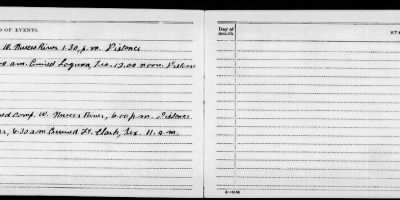 D OF EVENTS.
W. Nueces River 1.30, p.m. Distance
00 a.m. Arrived Laguna, Tex. 12.00 noon. Distanc
ed Camp. W. Nueces River, 6.00 p.m. Distance
6.30 a.m. Arrived Ft. Clark, Tex. 11. a.m.
Day of Month.
STA